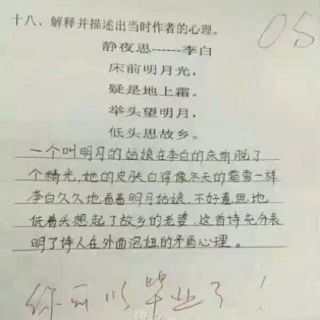 十八、解释并描述出当时作者的心理。
静夜思------李白
床前明月光，
疑是地上霜。
举头望明月，
低头思故乡。
一个叫明月的姑娘在李白的床前脱了
个精光，她的皮肤白得像冬天的霜雪一样
李白久久地看着明月姑娘，不好意思地
低着头想起了故乡的老婆，这首诗充分表
明了诗人在外面泡妞的矛盾心理。
你可以毕业了！